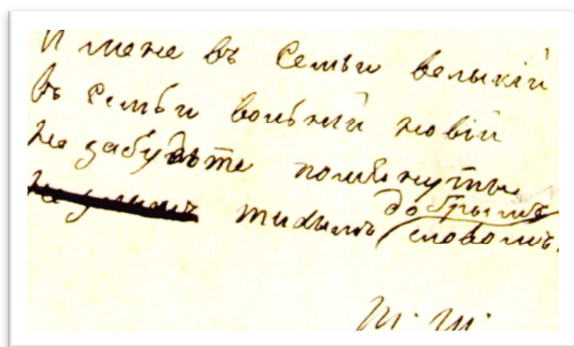 И мене въ семьи велыкій
Въ семьи вольній новій
Не забудьте помянуты
добрымъ
тихымъ словомъ.
Т. Ш.